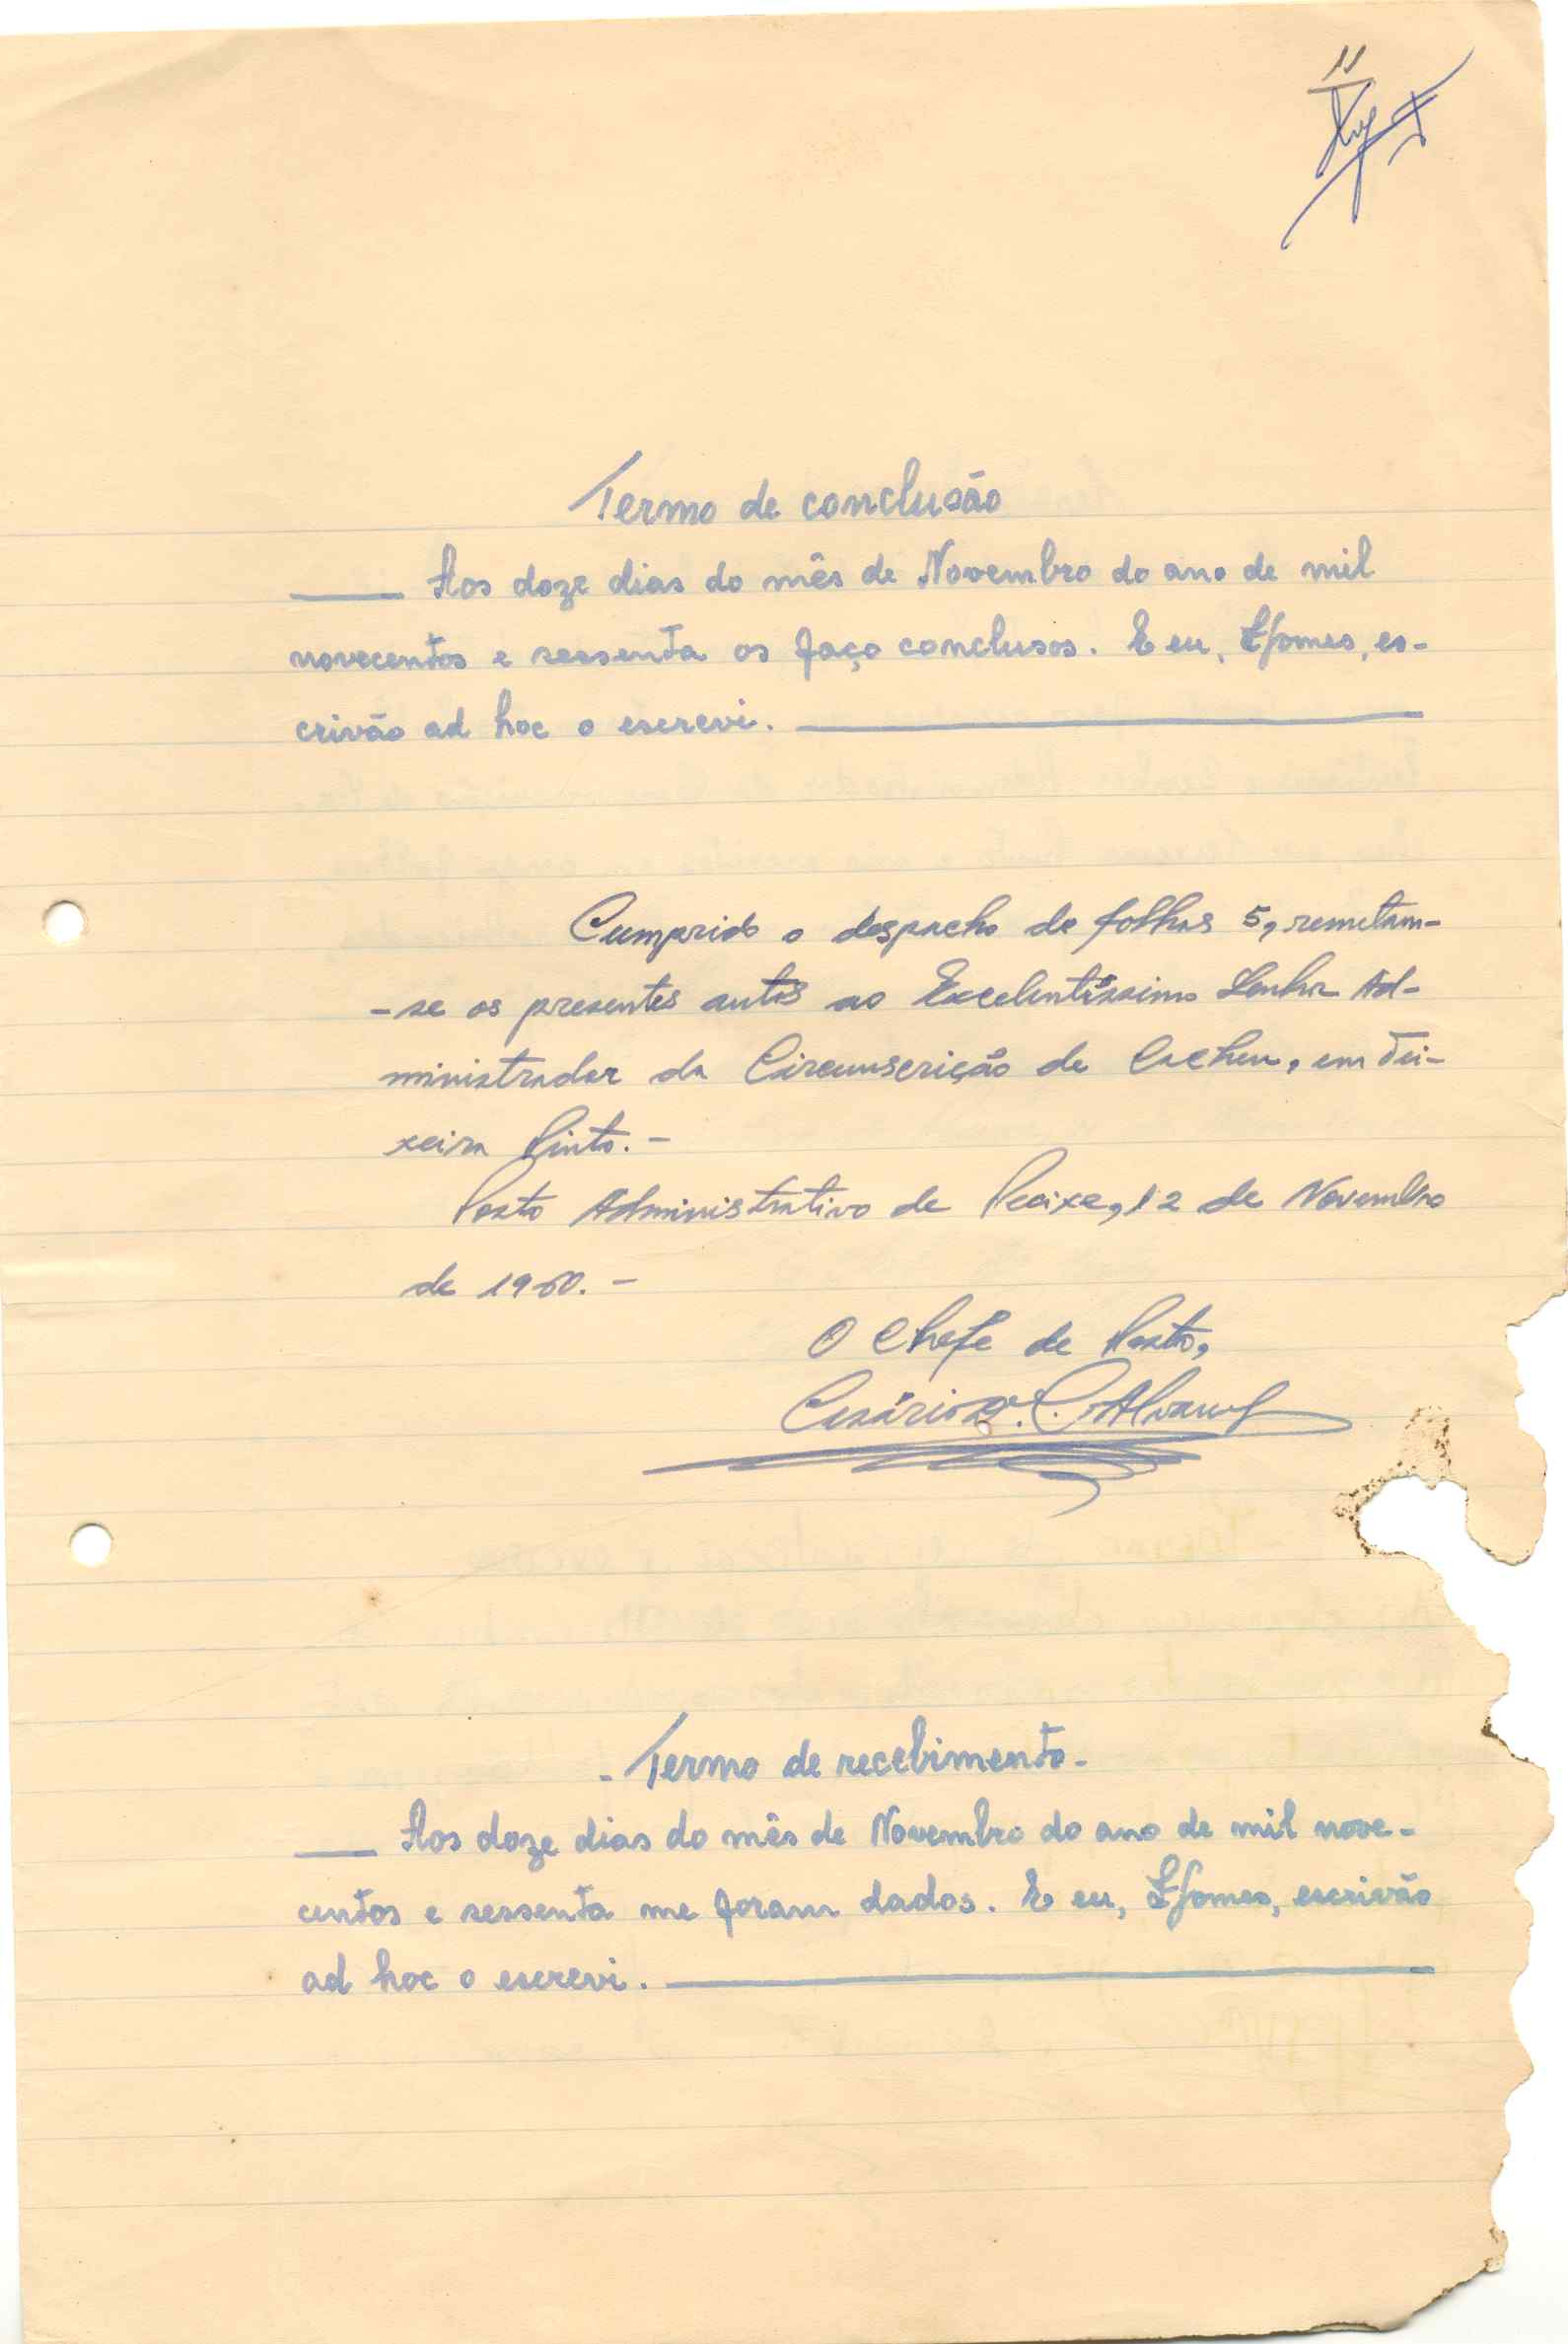 11
Termo de conclusão
Aos doze dias do mês de Novembro do ano de mil
novecentos e sessenta os faço conclusos. E eu, LGomes, es-
crivão ad hoc o escrevi.
Cumprido o despacho de folhas 5, remetam-
-se os presentes autos ao Excelentíssimo Senhor Ad-
ministrador da Circunscrição de Cacheu, em Tei-
xeira Pinto. -
Posto Administrativo de Pecixe, 12 de Novembro
de 1960. -
O Chefe de Posto,
Cesário C. Alvarez
- Termo de recebimento -
Aos doze dias do mês de Novembro do ano de mil nove-
centos e sessenta me foram dados. E eu, LGomes, escrivão
ad hoc o escrevi.